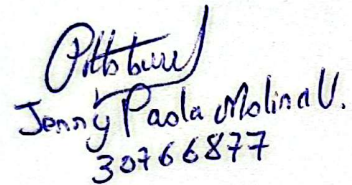 Jenny Paola Molina V.
30766877